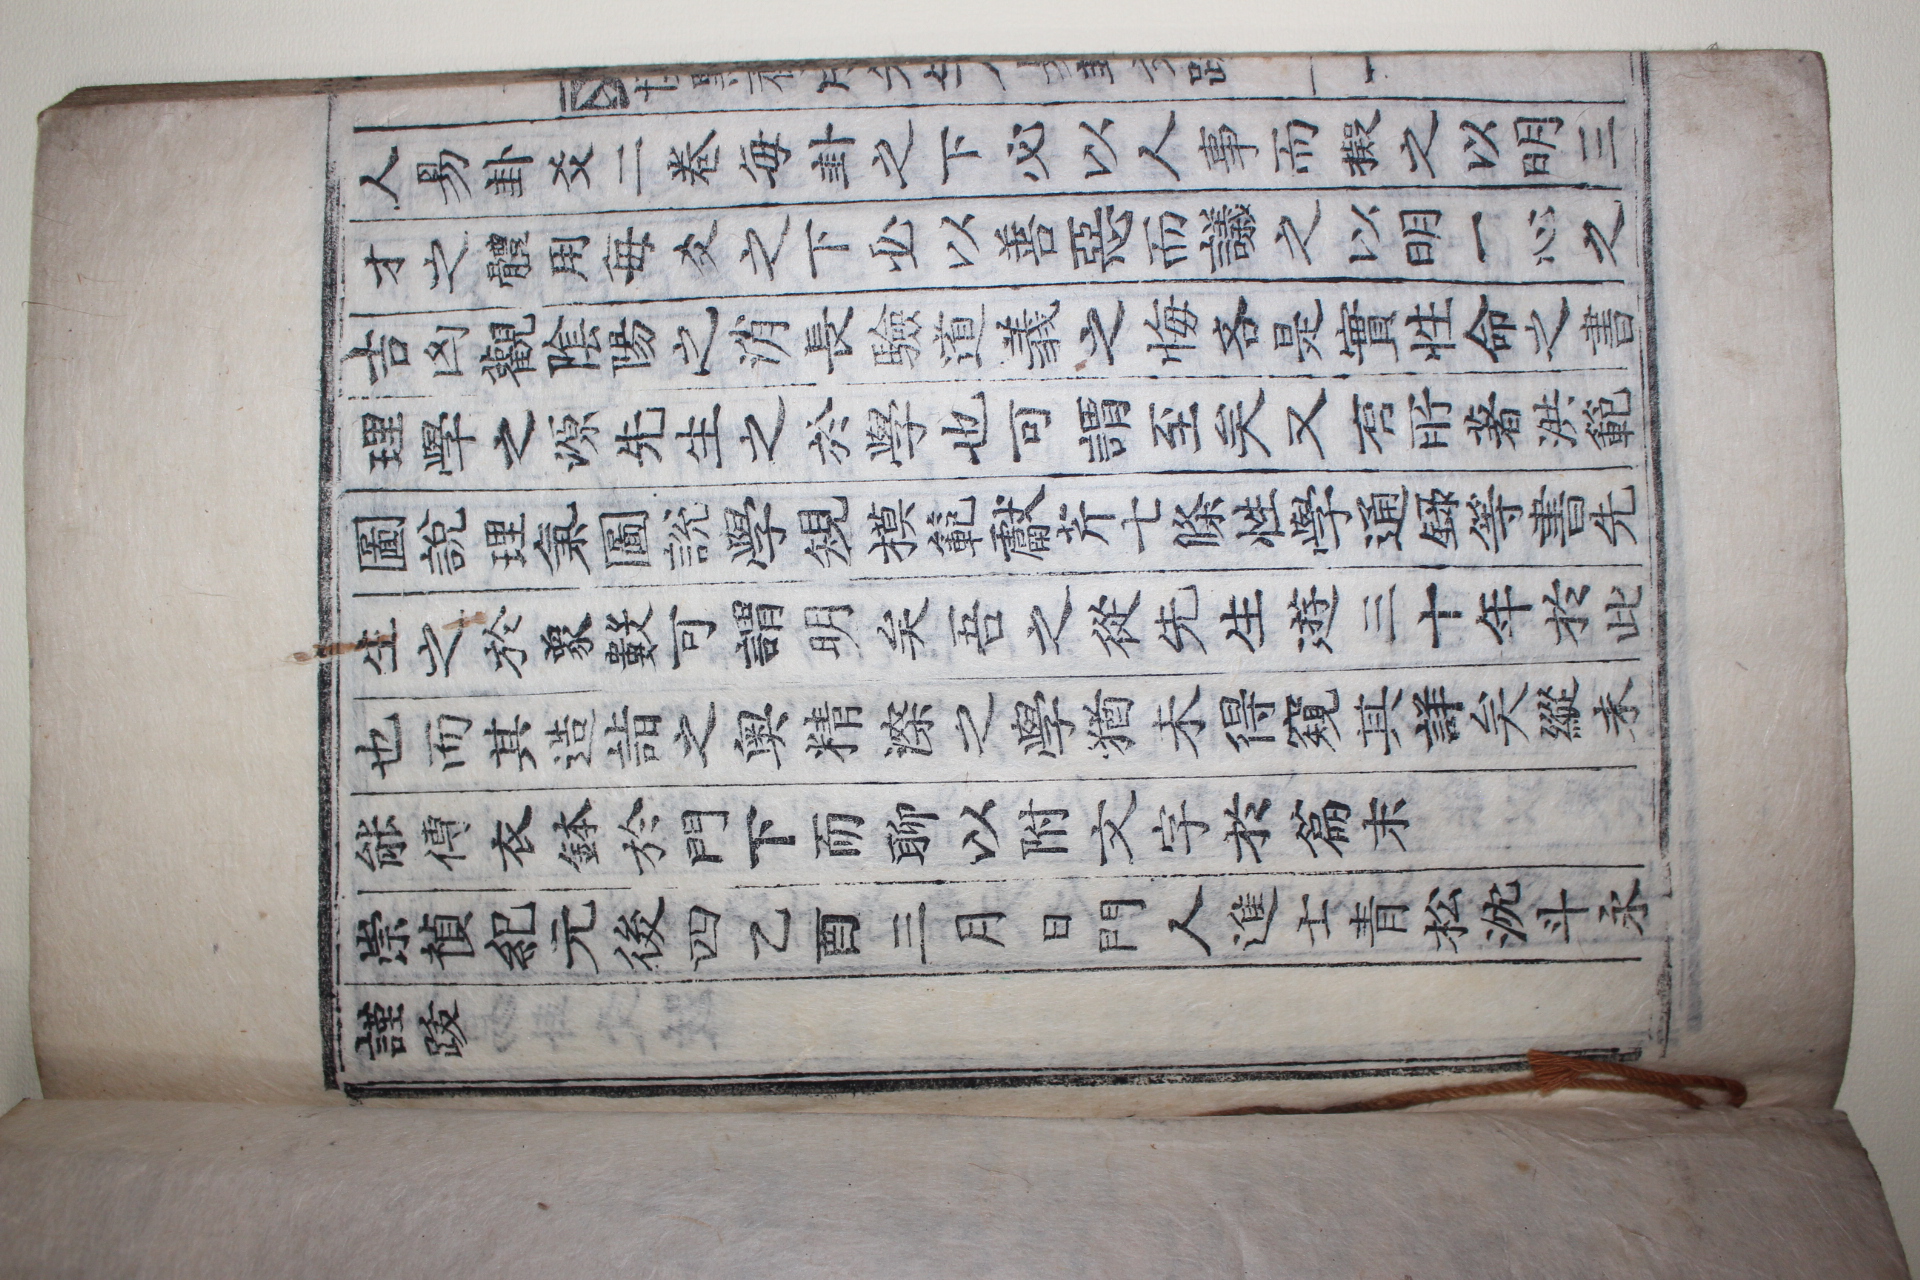 人易卦爻二卷每卦之下必以人事而擬之以明三
才之體用每爻之下必以善惡而議之以明一心之
吉凶觀陰陽之消長驗道義之悔吝是實性命之書
理學之源先生之於學也可謂至矣又有所著洪範
圖說理氣圖說學規模範獻芹七條性學通錄等書先
生之於象數可謂明矣吾之從先生遊三十年於此
也而其造詣之奧精深之學猶未得窺其詳矣縱未
能傳衣鉢於門下而聊以附文字於篇末
崇禎紀元後四乙酉三月日門人進士青松沈斗永
謹跋